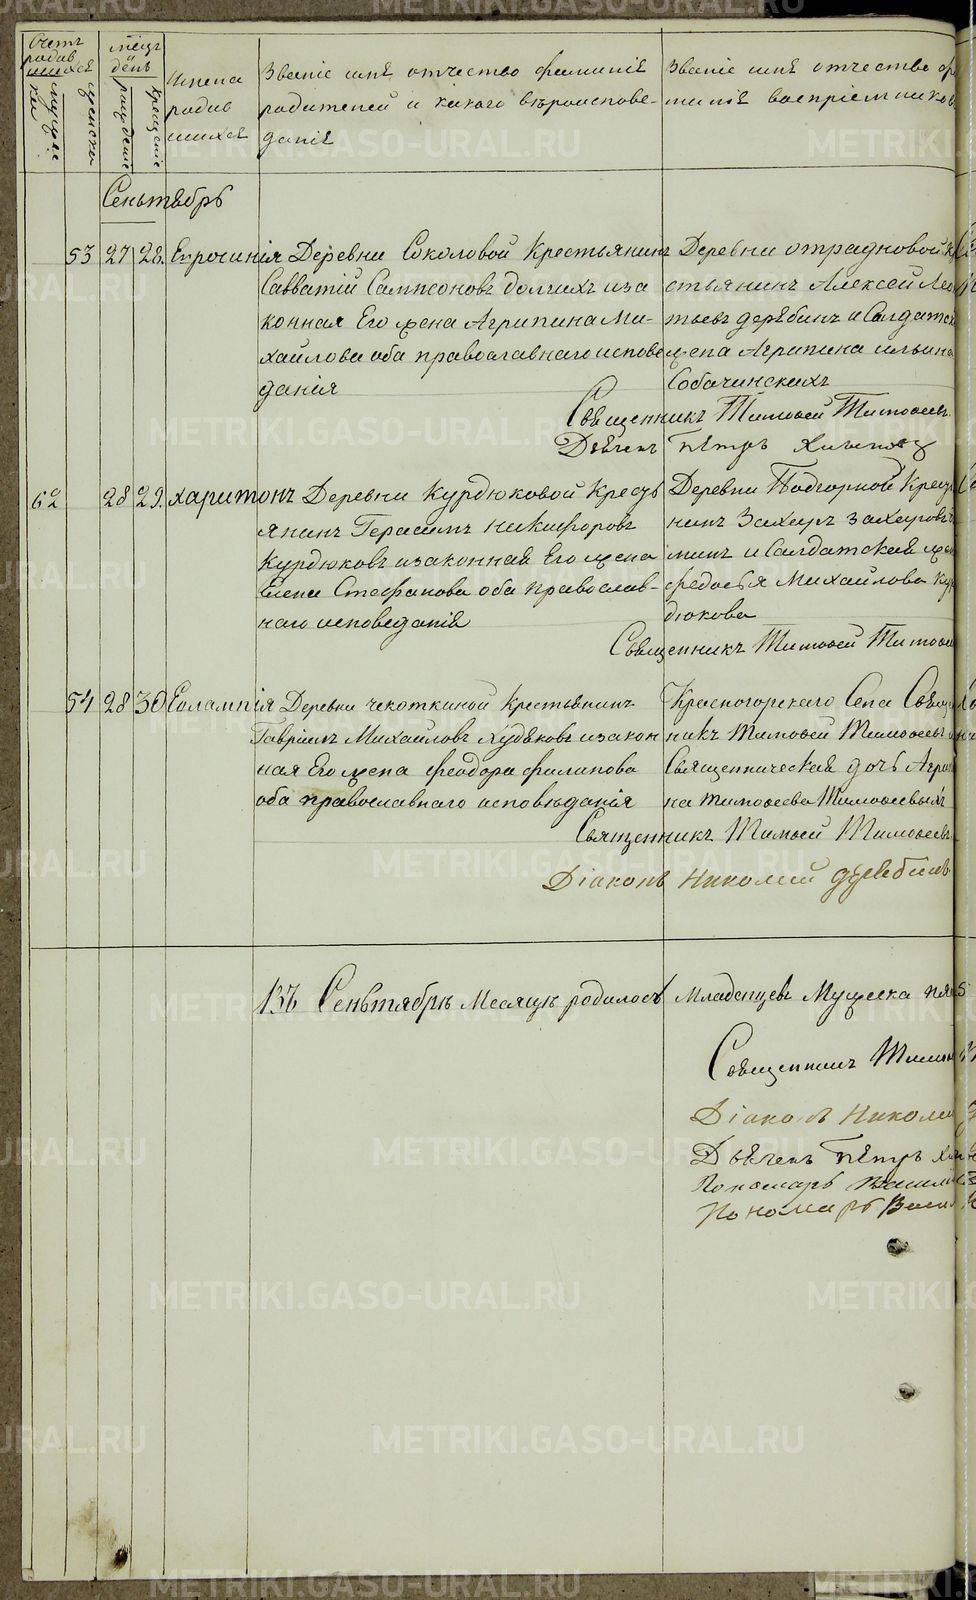 Счетъ родившихся
мужеска
женска
мѣсяцъ и день
рожденiе
крещенiе
Имена
родив
шихся
Званiе имя, отчество фамилiя
родителей и какого вѣроиспове-
данiя
Званiе имя отчество
милiя воспрiемников
Сеньтябрь
53 27 28. Евросинiя Деревни Соколовой Крестьянинъ
Савватiй Сампсоновъ долгихъ и за
конная Его жена Агрипина Ми-
хайлова оба православнаго испове
данiя
Деревни отрадновой
стьянинъ Алексей Лео
тьевъ дерябинъ и Салдатск
жена Агрипина ильина
Собачинскихъ
Священникъ Тимовей Тимовеевъ
Дьячекъ Пётръ
62 28 29. харитонъ Деревни Курдюковой Кресть
янинъ Герасимъ никифоровъ
Курдюковъ и законная Его жена
Елена Стефанова оба Православ-
наго исповеданiя
Деревни Подгорной Кресть
нинъ Захаръ Захаровъ
минъ и Салдатская жен
федосья Михайлова Кур
дюкова
Священникъ Тимовей Тимовее
54 28 30 Евлампiя Деревни чекоткиной Крестьянинъ
Гаврiилъ Михайловъ худяковъ и закон
ная Его жена феодора филипова
оба православнаго исповѣданiя
Красногорскаго Села Священ
никъ Тимовей Тимовеевъ и
Священническая дочь Агрипи
на тимовеева Тимовеевыхъ
Священникъ Тимовей Тимовеевъ
Дiаконъ Николай дерябинъ
Въ Сеньтябрѣ Месяцѣ родилось Младенцевъ Мужеска пя
Священникъ Тимов
Дiаконъ Никола
Дьячекъ Пётръ
Пономарь Васили
Пономарь Васил
METRIKI.GASO-URAL.RU